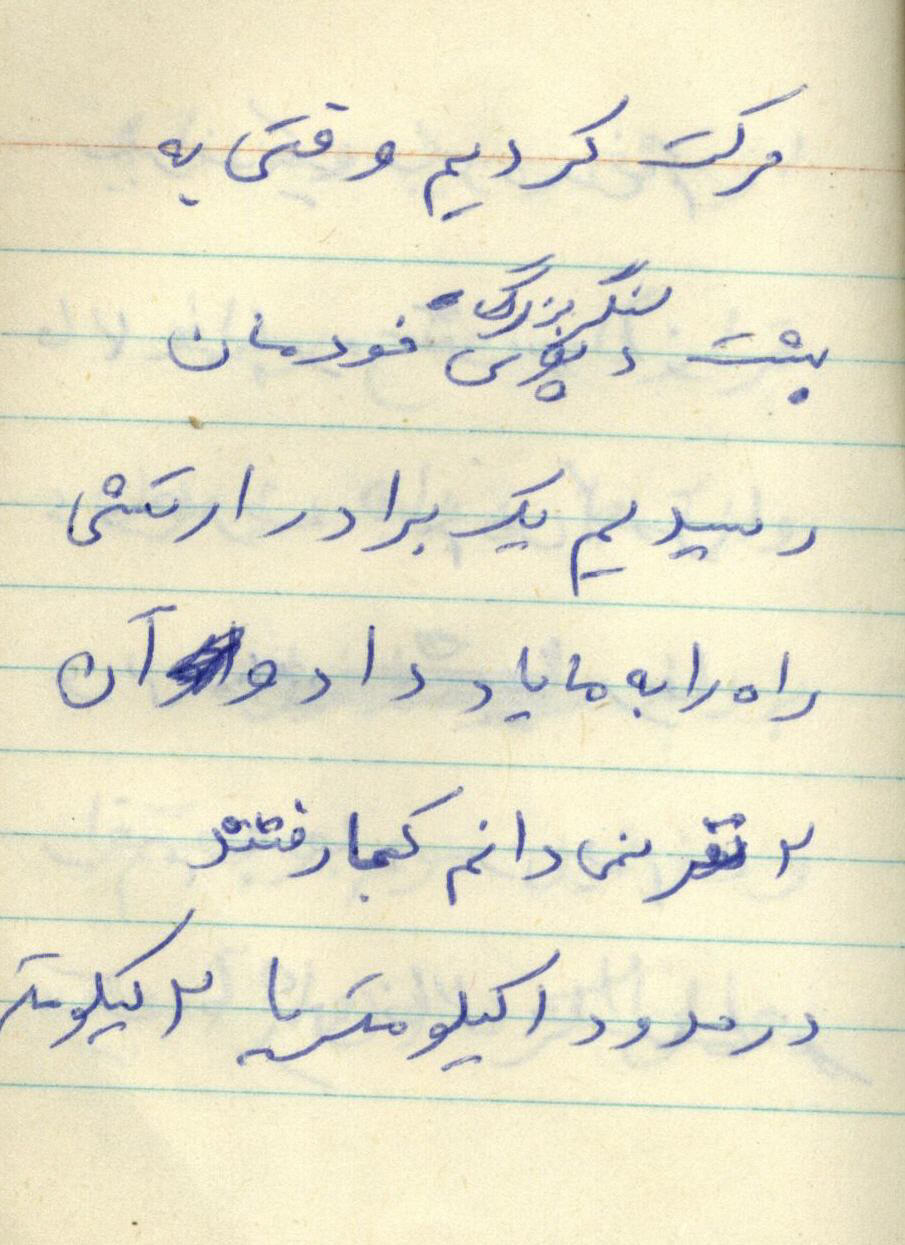 حرکت کردیم وقتی به
سنگر بزرگ
پشت خودمان
رسیدیم یک برادر ارتشی
راه را به ما یاد داد و آن
۲ نفر نمی دانم کجا رفتند
در حدود ۱ کیلومتر یا ۲ کیلومتر